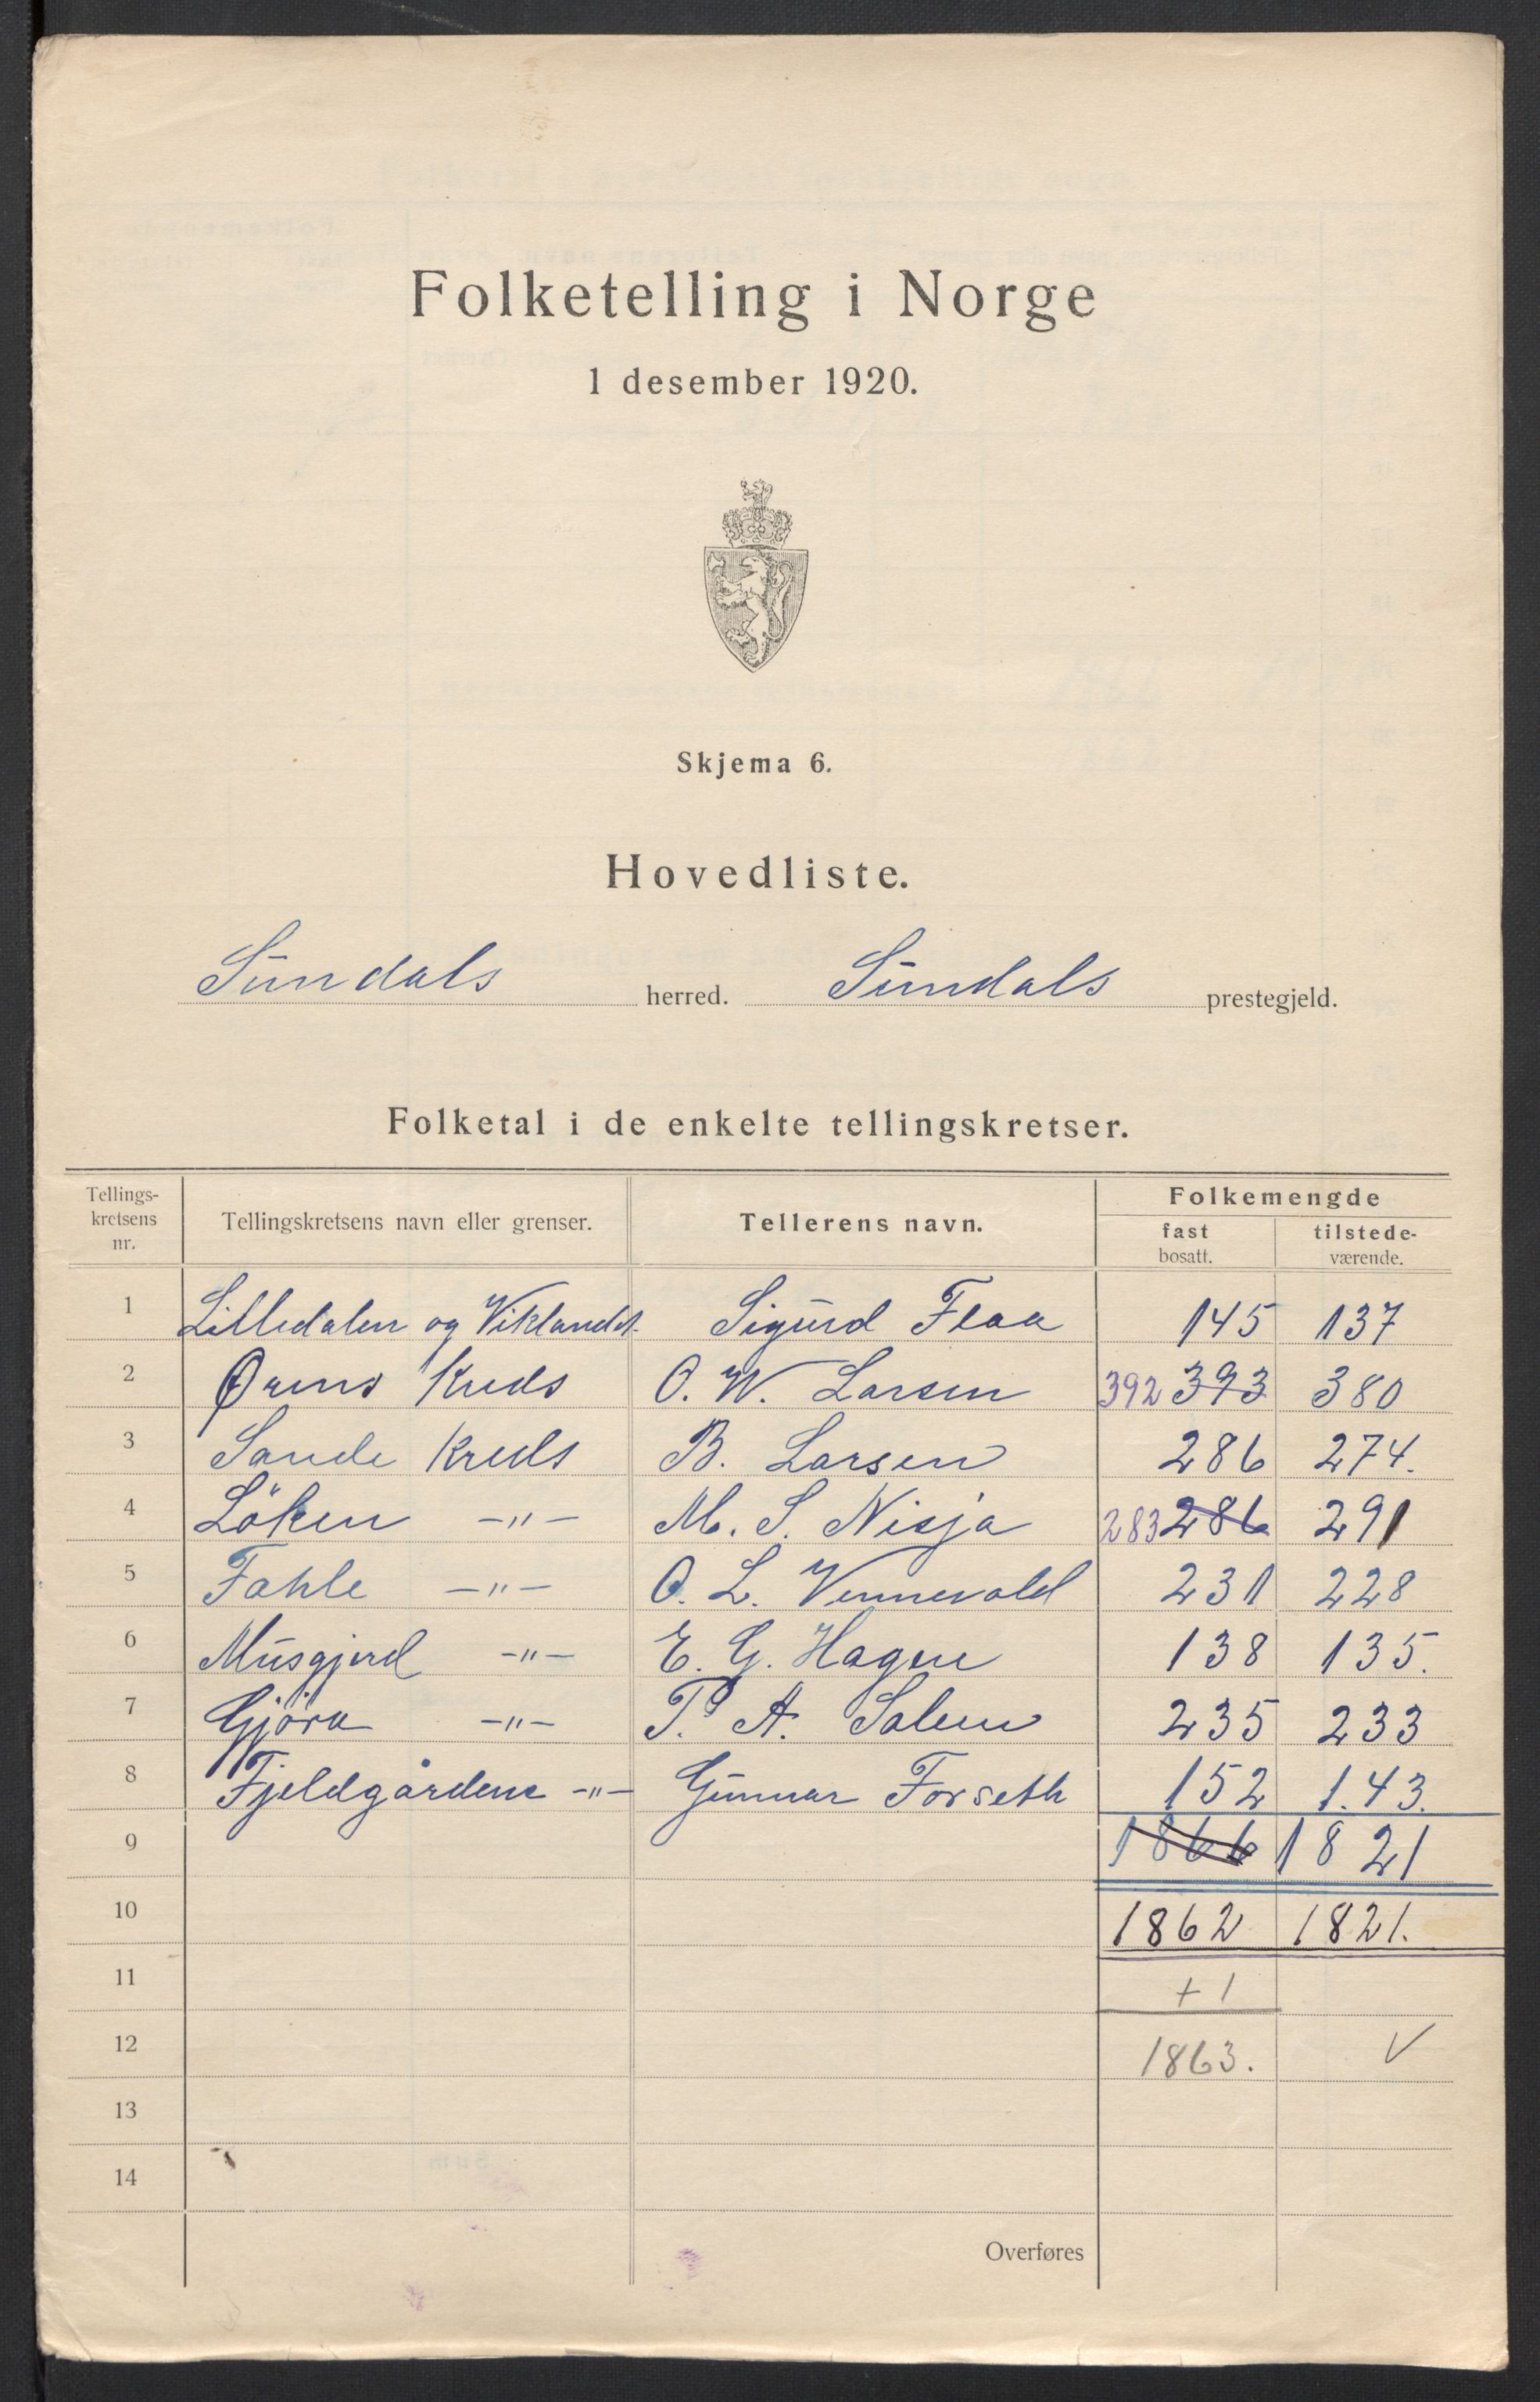 Folketelling i Norge
1 desember 1920.
Skjema 6.
Hovedliste.
Sundals herred. Sundals prestegjeld.
Folketal i de enkelte tellingskretser.
Tellings-
kretsens
nr.
Tellingskretsens navn eller grenser.
Tellerens navn.
Folkemengde
fast
bosatt.
tilstede-
værende.
1 Lilledalen og Viklandet. Sigurd Flaa 145 137
2 Ørens Kreds O. W. Larsen 392 393 380
3 Sande Kreds B. Larsen 286 274.
4 Löken -"- M. S. Nisja 283 286 291
5 Fahle -"- O. L. Vennevold 231 228
6 Musgjerd -"- E. G. Hagen 138 135.
7 Gjöra -"- P. A. Salen 235 233
8 Fjeldgårdene -"- Gunnar Forseth 152 1.43.
9 1866 1821
10 1862 1821.
11 + 1
12 1863. √
13
14
Overføres